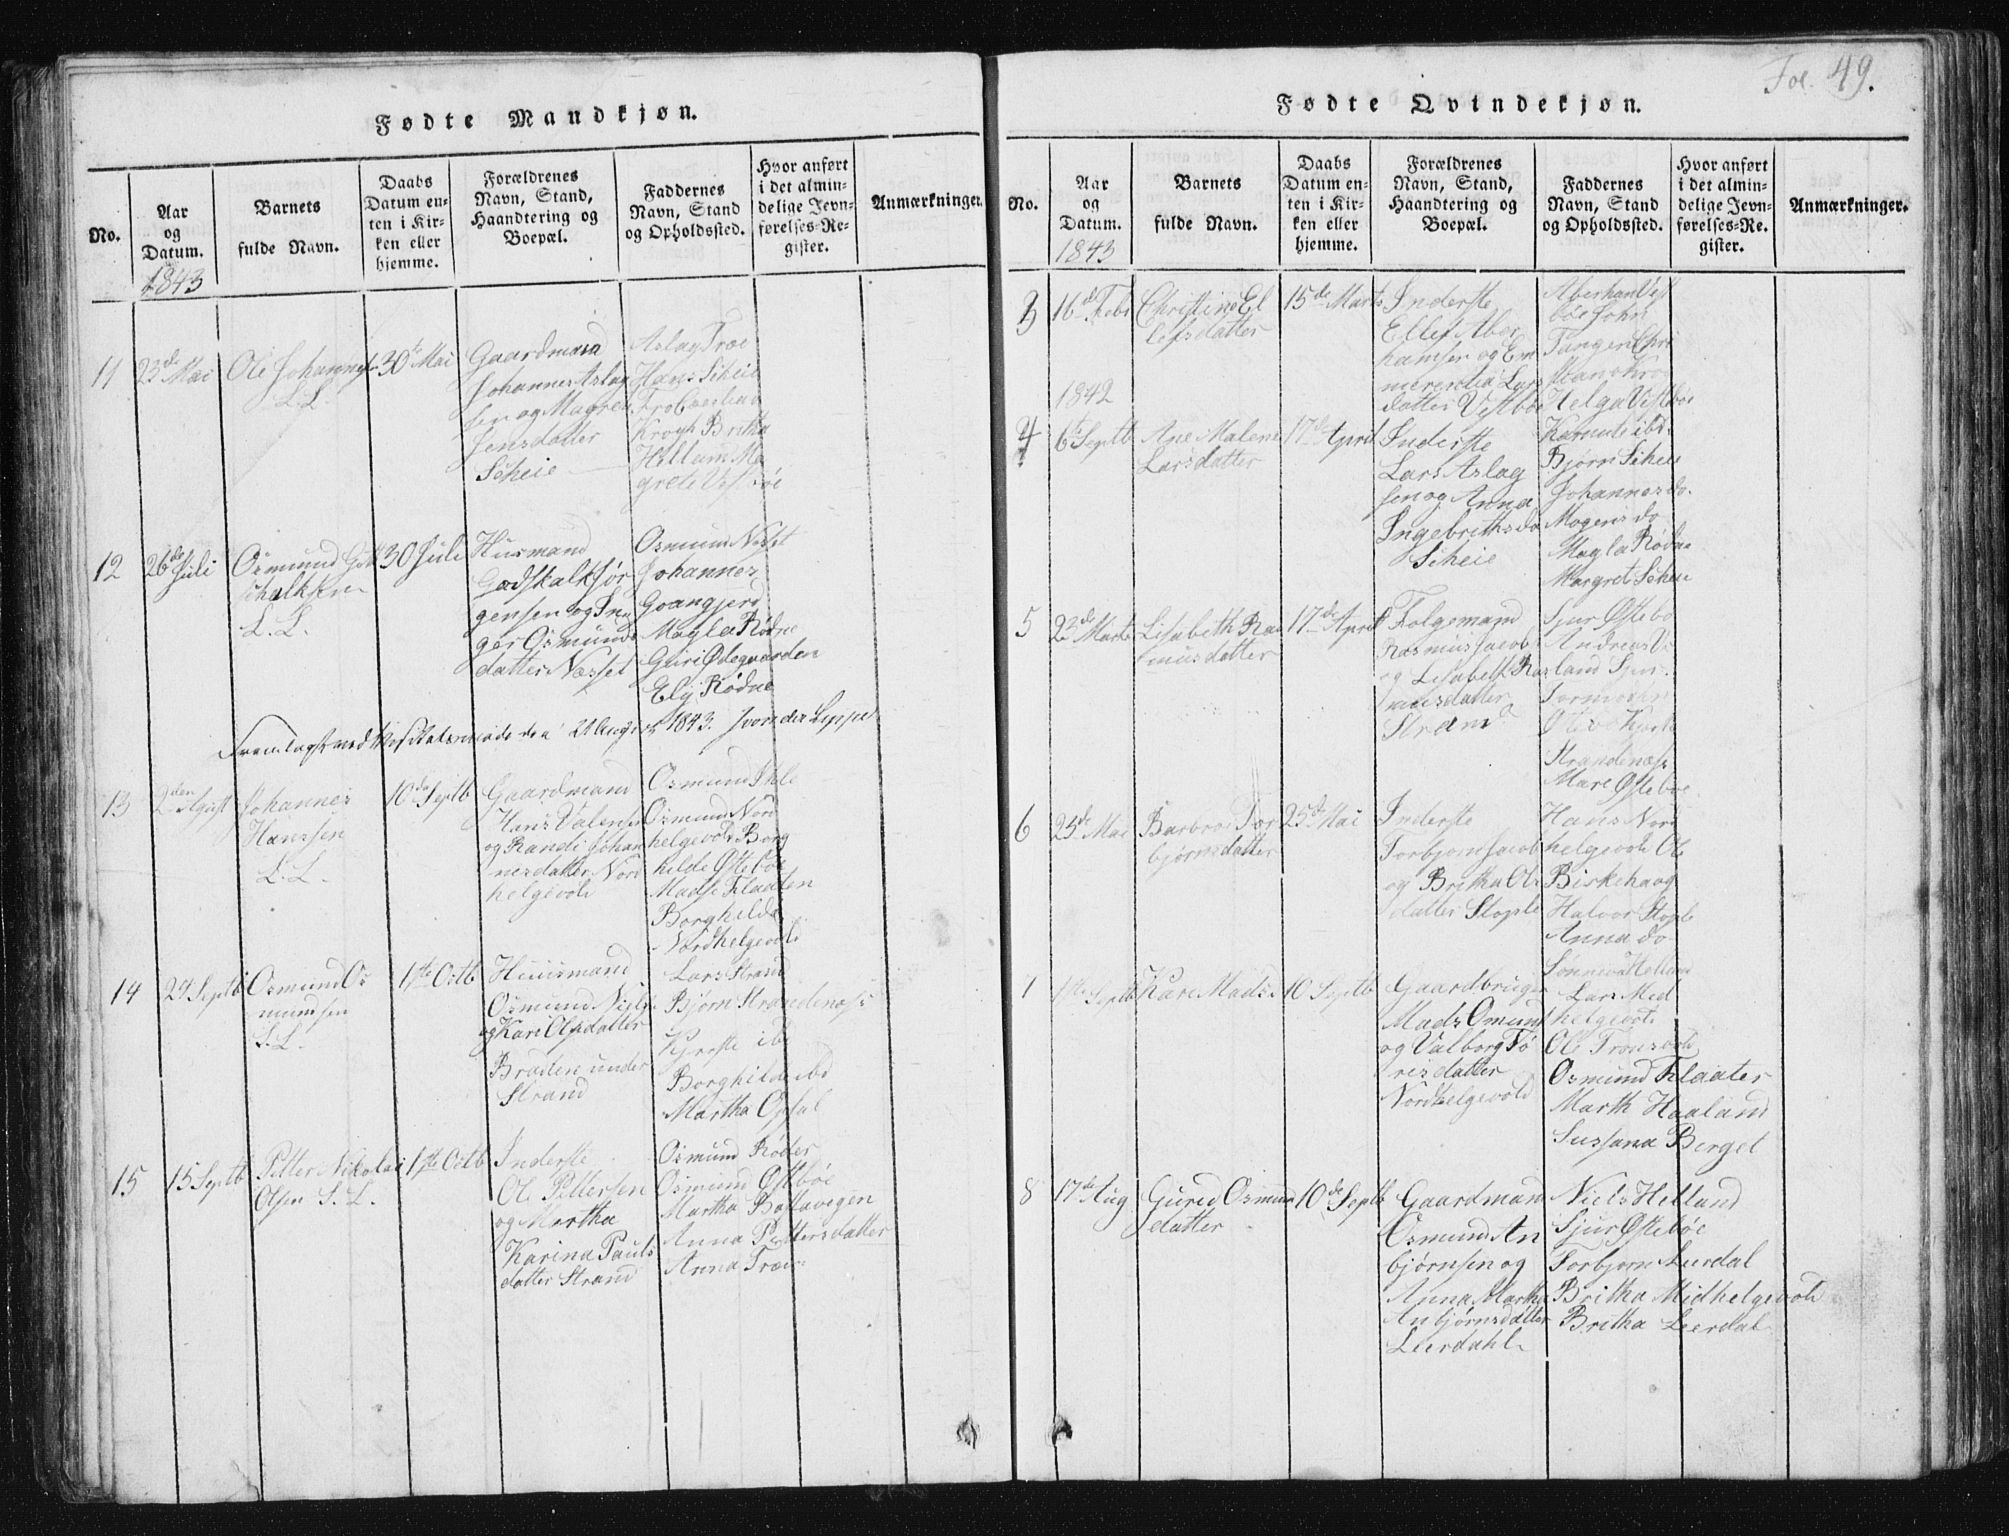 Fol. 49.
Fødte Mandkjøn.
No.
Aar
og
Datum.
1843
Barnets
fulde Navn.
Daabs
Datum en-
ten i Kir-
ken eller
hjemme.
Forældrenes
Navn, Stand,
Haandtering og
Boepæl.
Faddernes
Navn, Stand
og Opholdssted.
Hvor anført
i det almin-
delige Jevn-
førelses-Re-
gister.
Anmærkninger.
11
23de Mai
Ole Johannes
L.L.
30te Mai
Gaardmand
Johannes Aslag
sen og Magre
Jensdatter
Scheie
Aslag Træe
Hans Scheie
Krogh Britha
Hellum Ma
grete Vestbøe
12
26de Juli
Osmund Gott
schalksen
L.L.
30 Juli
Husmand
Godskalk Jør
gensen og In
ger Osmunds
datter Næsset
Osmund Nesset
Johannes
Goangjerd
Magla Rødne
Guri Ødegaarden
Eli Rødne
Fremlagt ved Visitatsmøde den 21 August 1843. J von der Lippe
13
2den August
Johannes
Hanssen
L.L.
10de Septb
Gaardmand
Hans Valensen
og Randi Johan
nesdatter Nord
helgevold
Osmund
Osmund Nord
helgevold Borg
hilde Østebøe
Mads Flaaten
Borghilda
Nordhelgevold
14
24 Septb
Osmund Os
mundsen
L.L.
1ste Octb
Huusmand
Osmund Niels
og Kari Olsdatter
Braden under
Strand
Lars Strand
Bjørn Strandenæss
Kjerste ibd
Borghilde ibd
Martha Opsal
15
15 Septb
Petter Nikolai
Olsen L.L.
1ste Octb
Inderste
Ole Pettersen
og Martha
Karina Pauls
datter Strand
Osmund Røder
Osmund Østbøe
Martha Bastavegen
Anna Pettersdatter
Anna Træe
Fødte Qvindekjøn.
No.
Aar
og
Datum.
1843
Barnets
fulde Navn.
Daabs
Datum en-
ten i Kir-
ken eller
hjemme.
Forældrenes
Navn, Stand,
Haandtering og
Boepæl.
Faddernes
Navn, Stand
og Opholdssted.
Hvor anført
i det almin-
delige Jevn-
førelses-Re-
gister.
Anmærkninger.
3
16de Febr
Christine El
lefsdatter
15de Marts
Inderste
Ellef Aber
hamsen og Em
merentia Lars
datter Vestbøe
Aberham Vest
bøe John
Tangen Chri
Helga Vestbøe
1842
4
6te Septb
Ane Malene
Larsdatter
17de April
Inderste
Lars Aslag
sen og Anna
Ingebrithsda
Scheie
Karnute ibd.
Bjørn Scheie
Johannes do.
Mogens do
Magla Rødne
Margret Scheie
5
23de Marts
Lisabeth Ras
musdatter
17de April
Følgemand
Rasmus Jacob
og Lisabeth Ras
musdatter
Strand
Sjur Østebø
Andreas Vi
land Sjur
Tormoden
Strandenæss
Mare Østebøe
6
25de Mai
Barbro Tor
bjørnsdatter
25de Mai
Inderste
Torbjørn Jacob
og Britha Ols
datter Stople
Hans Nord
helgevold Ole
Birkehaog
Halvor Stople
Anna do
1
1ste Septb
Kare Mads.
10 Septb
Gaardbruger
Mads Omund
og Valborg Tø
risdatter
Nordhelgevold
Lars Med
helgevold
Ole Tronsvold
Osmund Flaaten
Marth Haaland
Sussana Berget
8
17de Aug
Gured Osmun
datter
10de Septb
Gaardmand
Osmund An
bjørnsen og
Anna Martha
Anbjørnsdatter
Leerdahl
Niels Helland
Sjur Østebøe
Torbjørn Leerdal
Britha Midhelgevold
Britha Leerdal